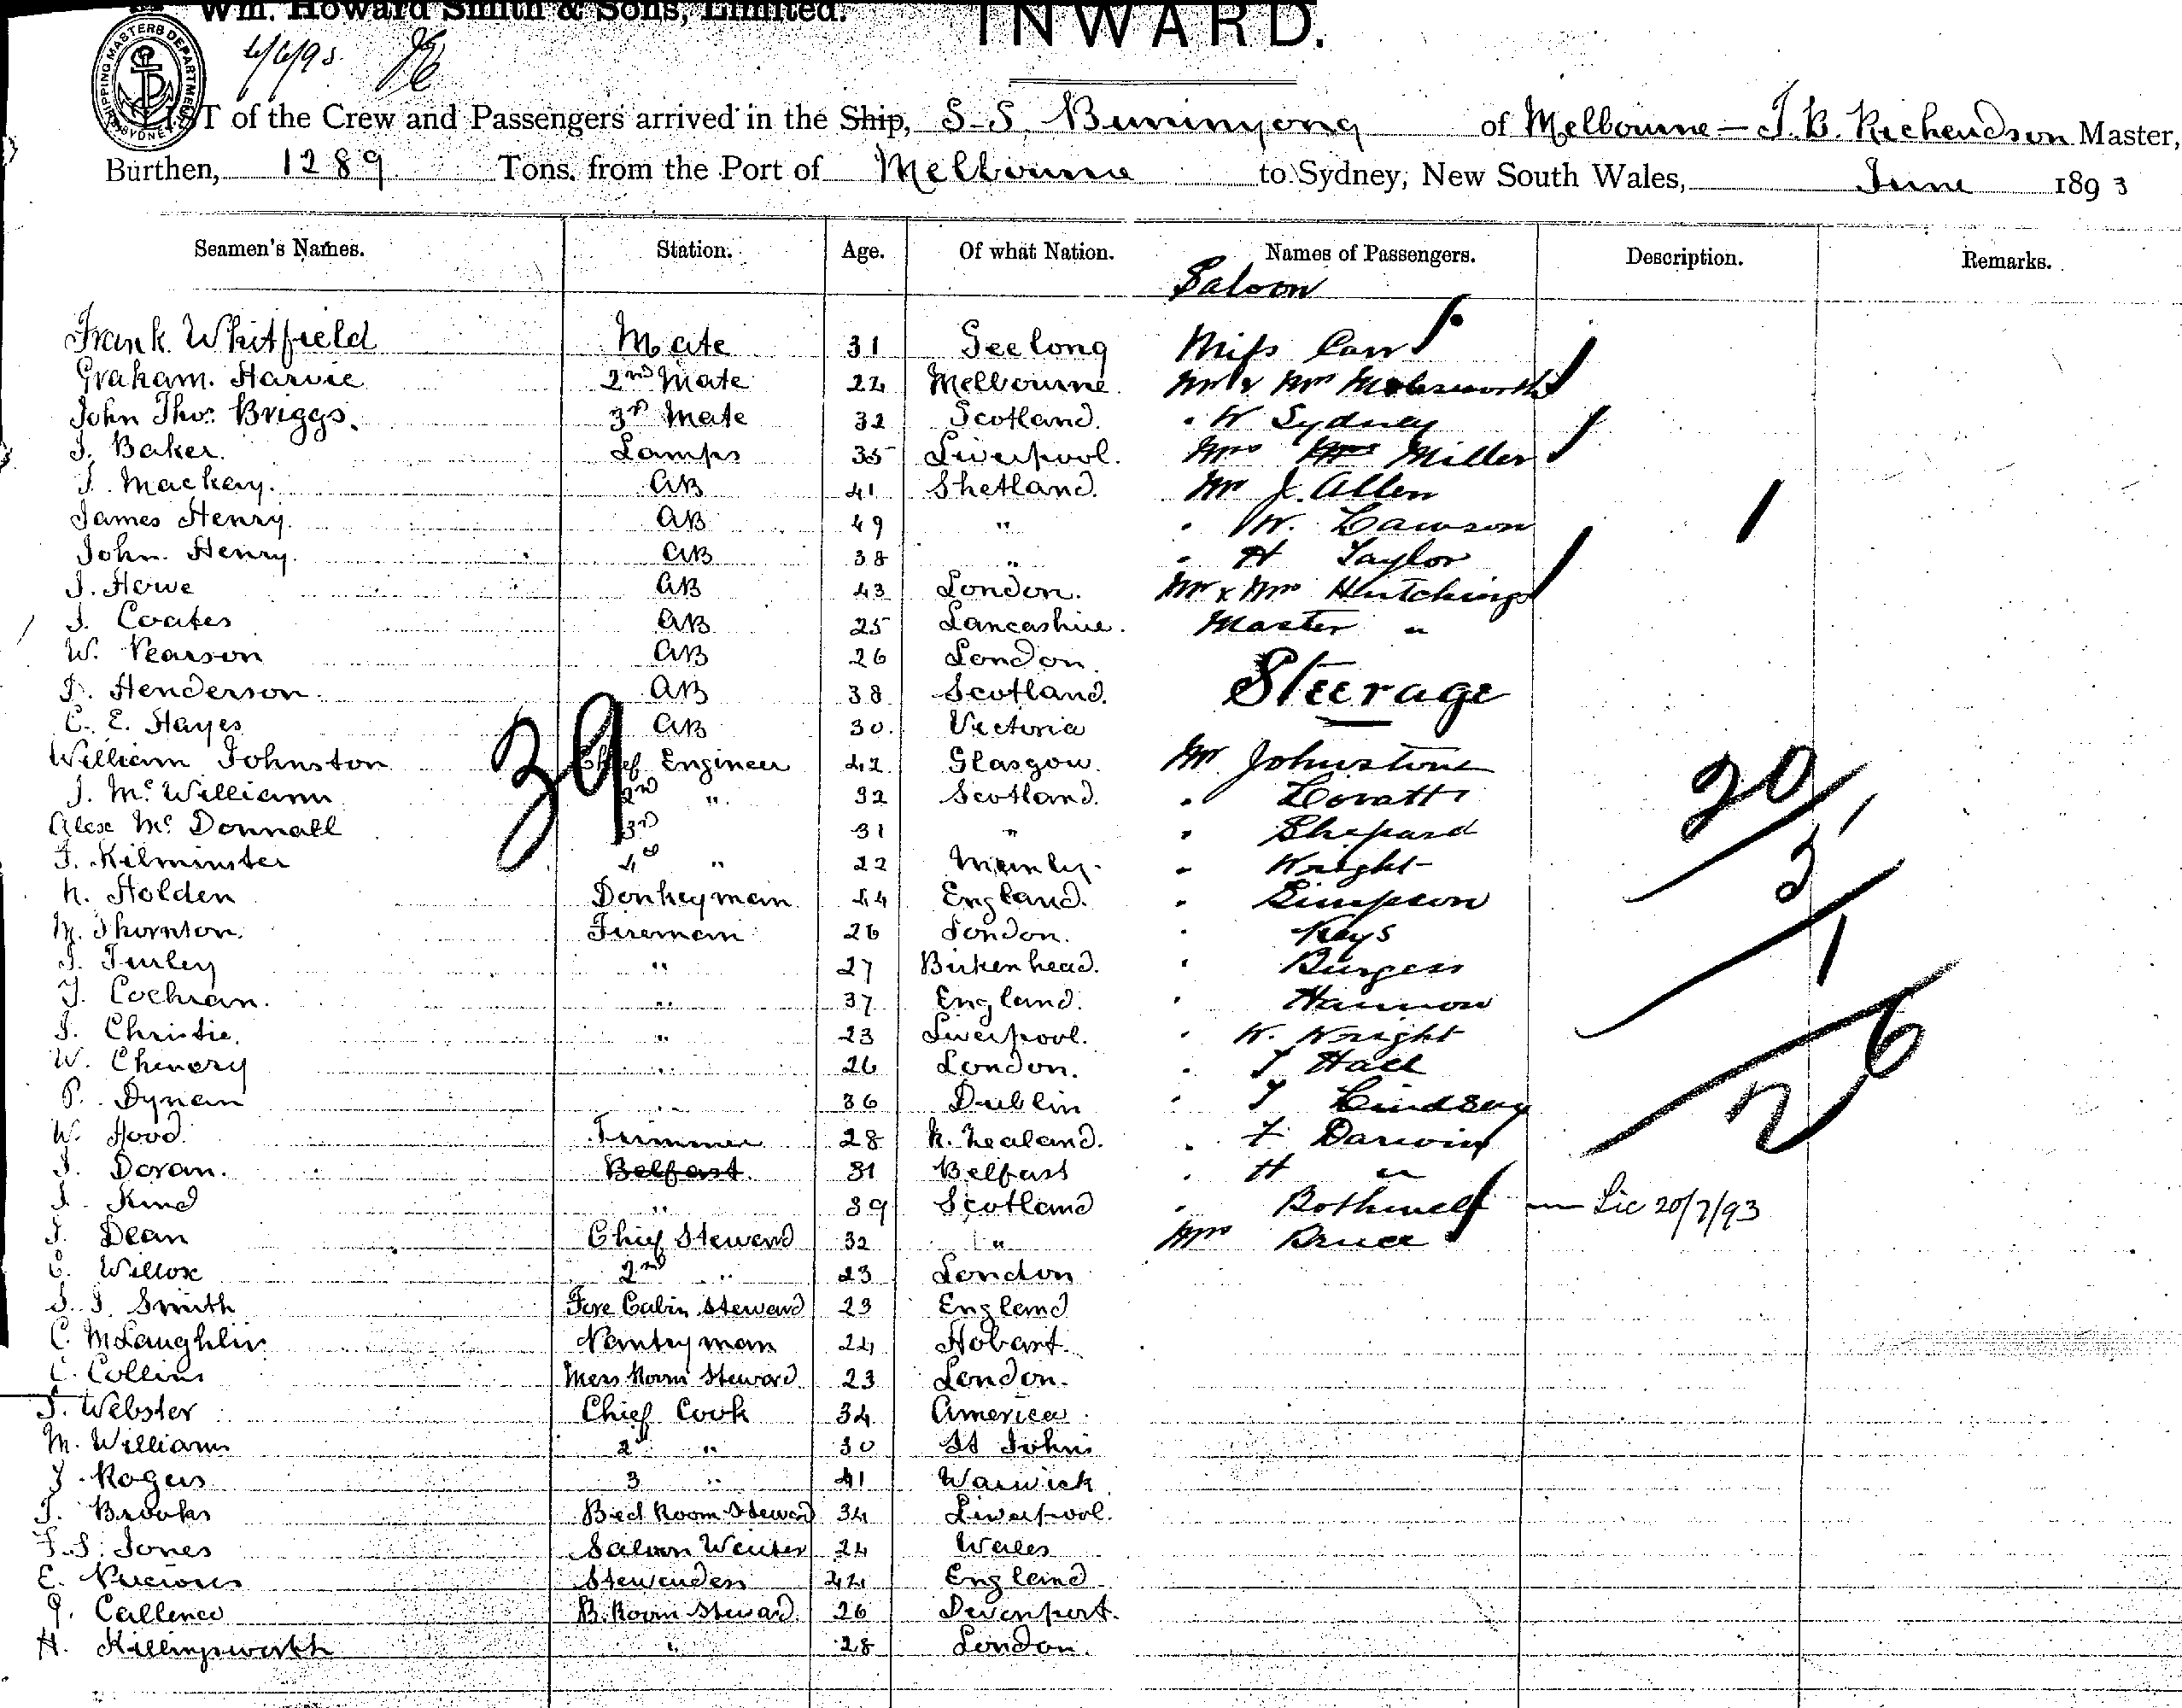 Wm. Howard Smith & Sons, Limited.
INWARD.
SHIPPING MASTERS DEPARTMENT SYDNEY
LIST of the Crew and Passengers arrived in the Ship, S.S. Buninyong of Melbourne — J. B. Richardson Master,
Burthen, 1289 Tons, from the Port of Melbourne to Sydney, New South Wales, June 1893
Seamen's Names. Station. Age. Of what Nation. Names of Passengers. Description. Remarks.
Saloon
Frank Whitfield Mate 31 Geelong Miss Carr
Graham Harvie 2nd Mate 22 Melbourne Mr & Mrs Molesworth
John Thos. Briggs. 3rd Mate 32 Scotland. " W Sydney
J. Baker. Lamps 35 Liverpool. Mrs Miller
J. Mackay. AB 41 Shetland. Mr J. Allen
James Henry. AB 49 " " W. Lawson
John Henry. AB 38 " " H Taylor
J. Howe AB 43 London. Mr & Mrs Hutchings
J. Coates AB 25 Lancashire. Master "
W. Pearson AB 26 London.
J. Henderson. AB 38 Scotland. Steerage
C. E. Hayes AB 30. Victoria
39
William Johnston Chief Engineer 42 Glasgow. Mr Johnstone
J. McWilliam 2nd " 32 Scotland. " Lovatt 20
Alex McDonnall 3rd 31 " " Shepard 1
J. Kilminster 4th " 22 Manly. " Wright 5
N. Holden Donkeyman 44 England. " Simpson
M. Thornton. Fireman 26 London. " Keys 1
J. Turley " 27 Birkenhead. " Burgess
J. Cochran. " 37 England. " Hannon
J. Christie. " 23 Liverpool. " W. Wright 6
W. Chenery " 26 London. " J Hall
P. Dynan " 36 Dublin " J Lindsay
W. Hood. Trimmer 28 N. Zealand. " F Darwin
J. Doran. Belfast 31 Belfast " H "
J. Kind " 39 Scotland " Bothwell — Lic 20/7/93
J. Dean Chief Steward 32 " Mrs Bruce
C. Willox 2nd " 23 London
J. J. Smith Fore Cabin Steward 23 England
C. McLaughlin Pantryman 24 Hobart.
C. Collins Mess Room Steward 23 London.
J. Webster Chief Cook 34 America
M. Williams 2 " 30 St Johns
J. Rogers 3 " 41 Warwick
J. Brooks Bed Room Steward 34 Liverpool.
F. S. Jones Saloon Waiter 24 Wales
E. Stewardess 42 England
B. Room Steward 26 Devonport.
H. Killingsworth " 28 London.